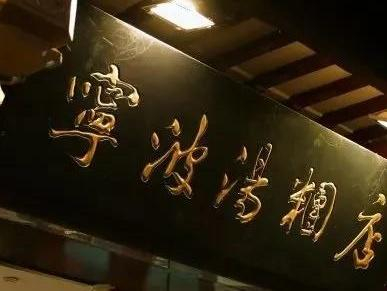 寧波湯糰店